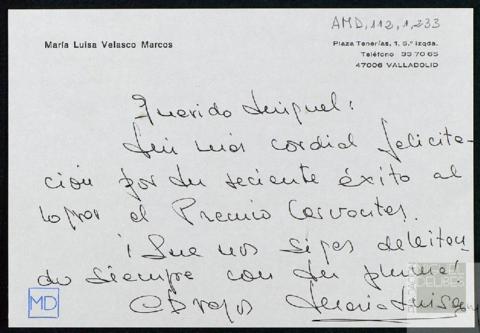 AMD, 112, 1, 233
María Luisa Velasco Marcos
Plaza Tenerías, 1, 5.º Izqda.
Teléfono 33 70 65
47006 VALLADOLID
Querido Miguel:
Mi más cordial felicita-
ción por tu reciente éxito al
lograr el Premio Cervantes.
¡Que nos sigas deleitan-
do siempre con tu pluma!
Abrazos María Luisa
MD
DELIBES